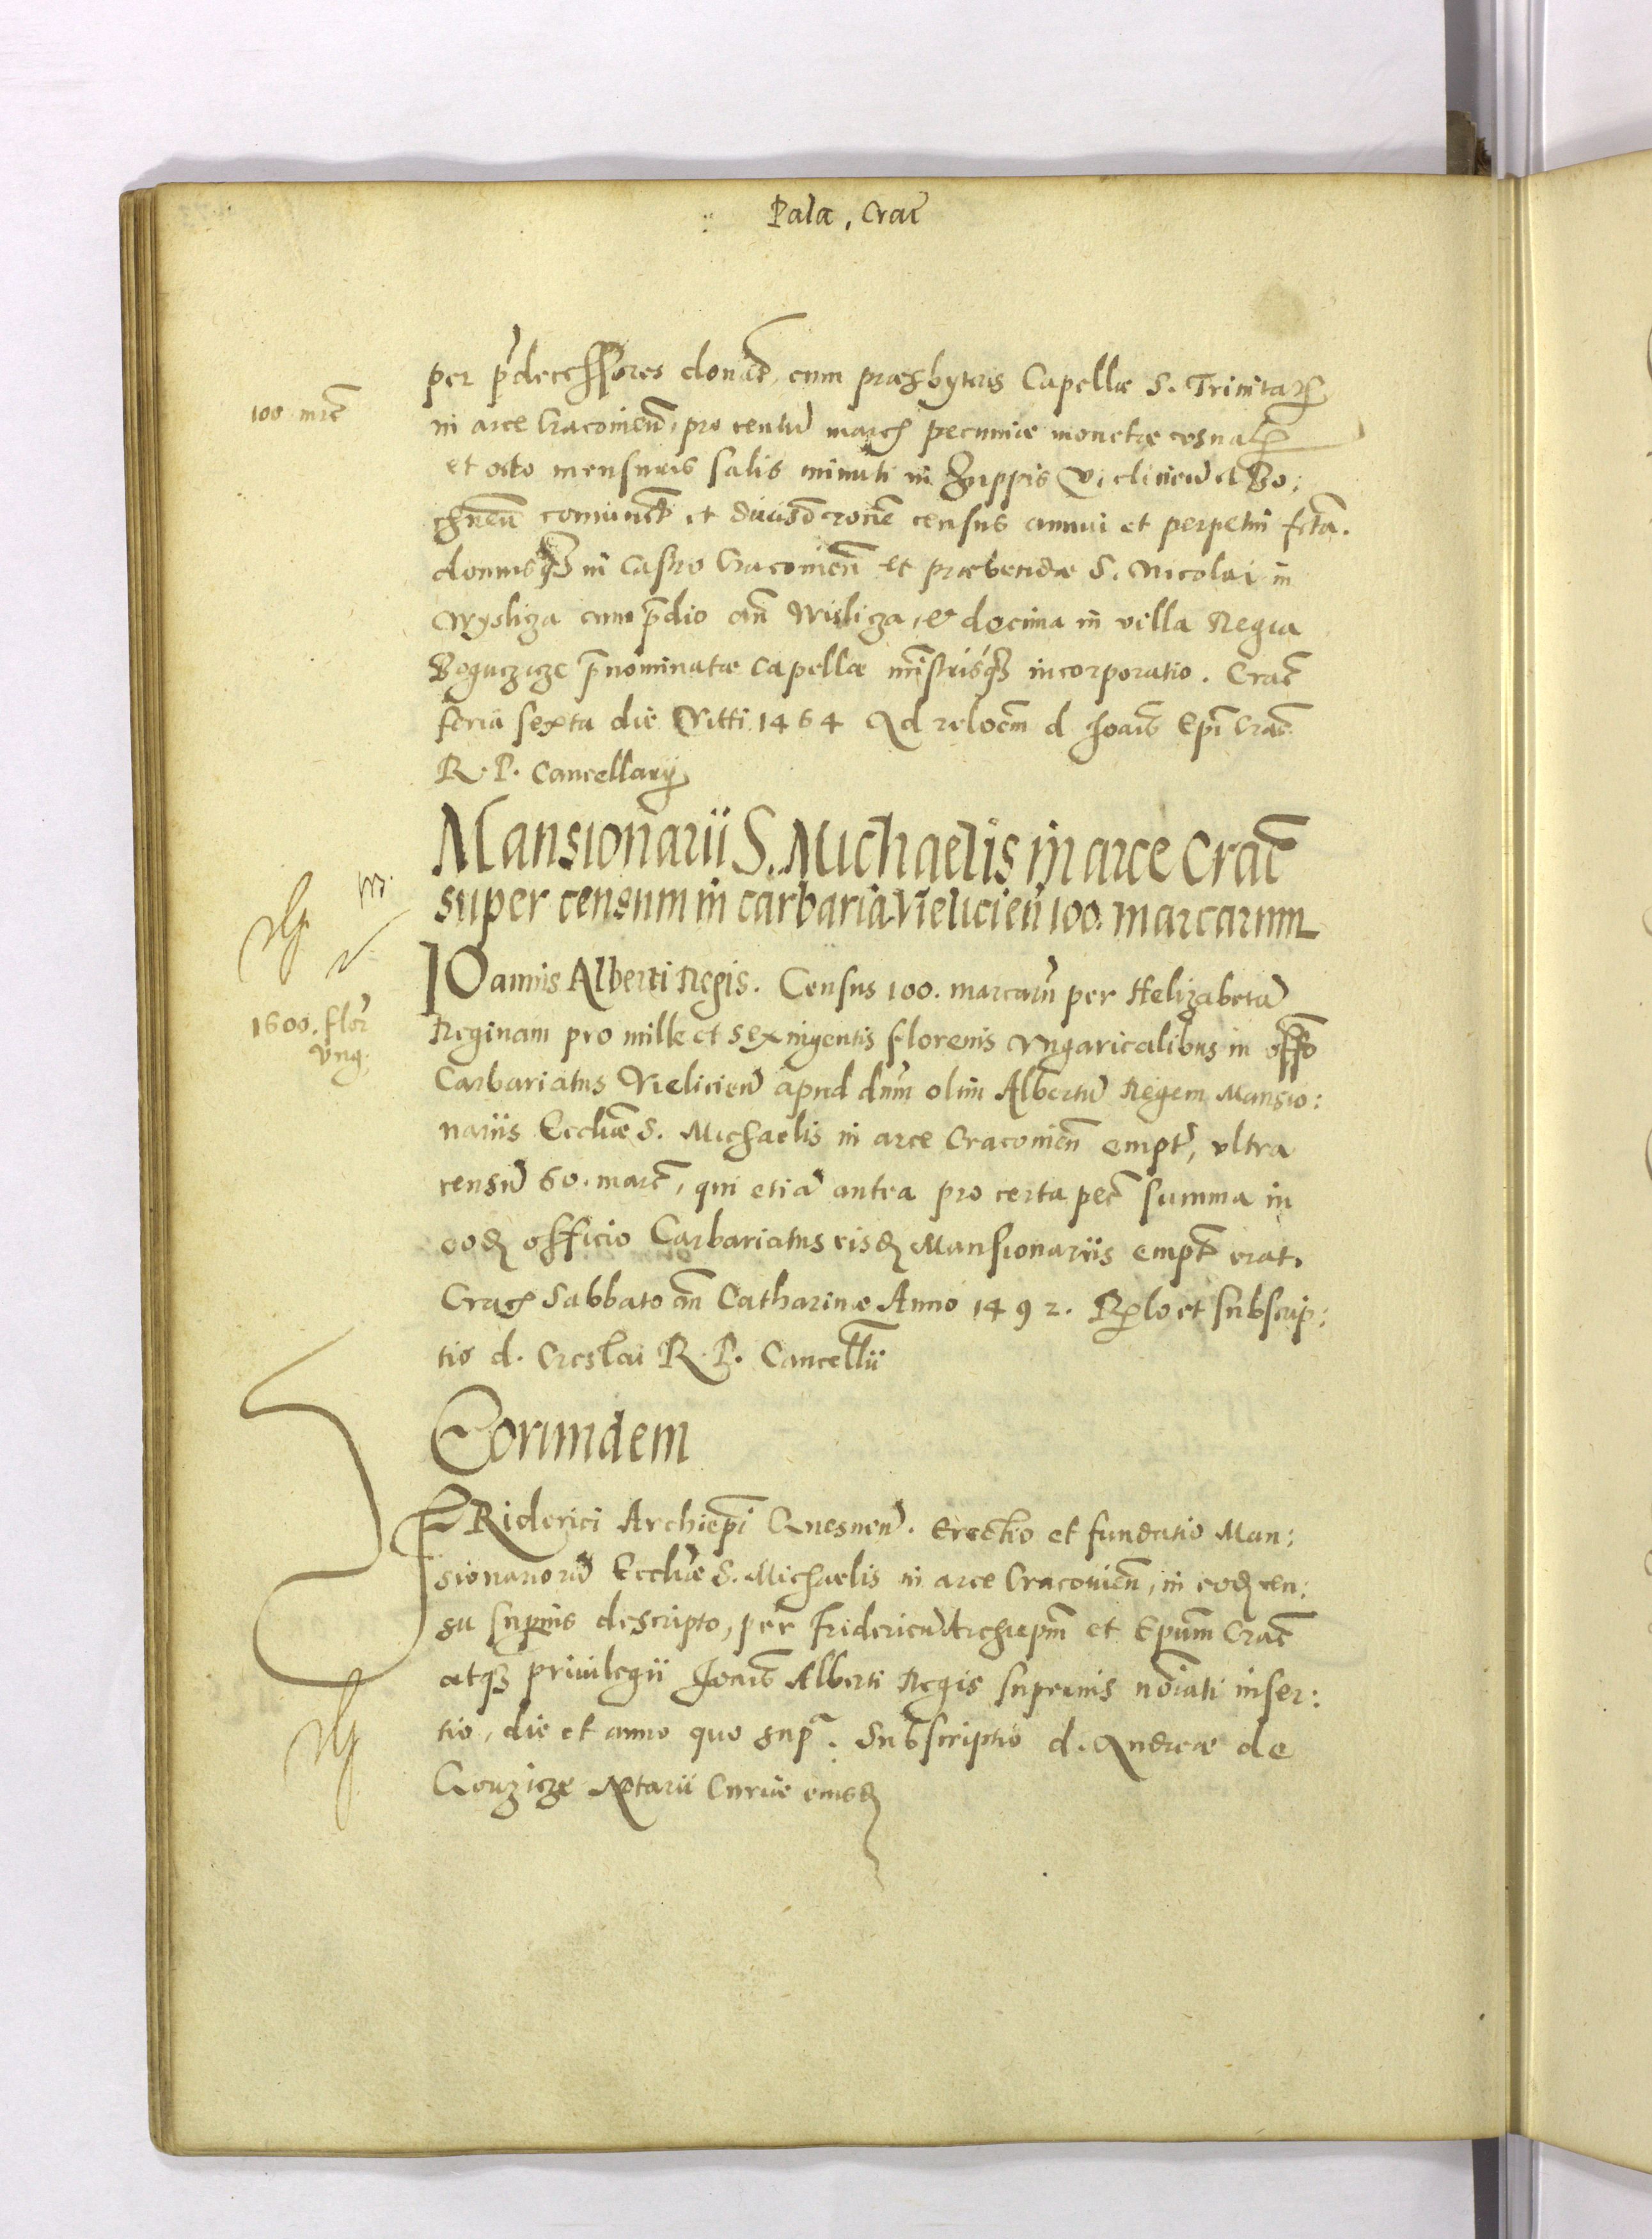 Pala. Crac
per p̄decessores donat, cum præsbyteris Capellæ S. Trinitatis
100 mrc
in arce Cracovien̄, pro centū march pecuniæ monetæ
et octo mensuris salis minuti in Zuppis Vielicien̄ et Bo:
chnen̄ coniunct et census annui et perpetui fcta.
domusq3 in Castro Cracovien̄ et præbendæ S. Nicolai in
Wysliza cum p̄dio an̄ Wisliza, et decima in villa Regia
Boguczicze p̄nominatæ Capellæ mīstrisq3 incorporatio. Crac
feria sexta die Vitti 1464 Ad reloem d Joais Epi Crac
R. P. Cancellarij
Mansionarii S. Michaelis in arce Crac
super censum in carbaria Vielicien̄ 100. marcarum
IOannis Alberti Regis. Census 100. marcarū per Helizabetā
1600. flor
Vng.
Reginam pro mille et sexingentis florenis Vngaricalibus in offo
Carbariatus Vielicien̄ apud dnm olim Albertū Regem Mansio:
nariis Eccliæ S. Michaelis in arce Cracovien̄ empt, vltra
censū 60. marc, qui etiā antea pro certa pec summa in
eod officio Carbariatus eisd Mansionariis empt erat.
Crac Sabbato an̄ Catharinæ Anno 1492. Rlo et subscrip:
tio d. Creslai R. P. Cancellii
Eorumdem
FRiderici Archiepi Gnesnen̄. Erectio et fundatio Man:
sionariorū Eccliæ S. Michaelis in arce Cracovien̄, in eod cen:
su supius descripto, per Fridericū Archiepm et Epum Crac
atq3 privilegii Joais Alberti Regis superius noiati inser:
tio, die et anno quo supa. Subscriptio d. Andreæ de
Notarii Curiæ eiusd